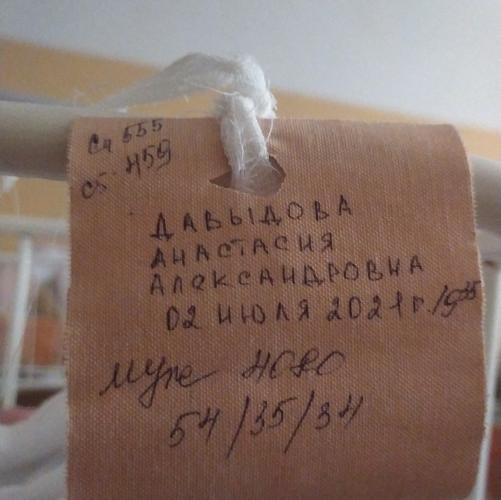 Сч 555
С5 459
ДАВЫДОВА
АНАСТАСИЯ
АЛЕКСАНДРОВНА
02 ИЮЛЯ 2021 г. 19 35
муж 4080
54/35/34